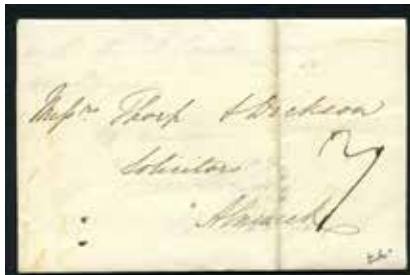 Messrs Thorp & Dickson
Solicitors
Alnwick
7